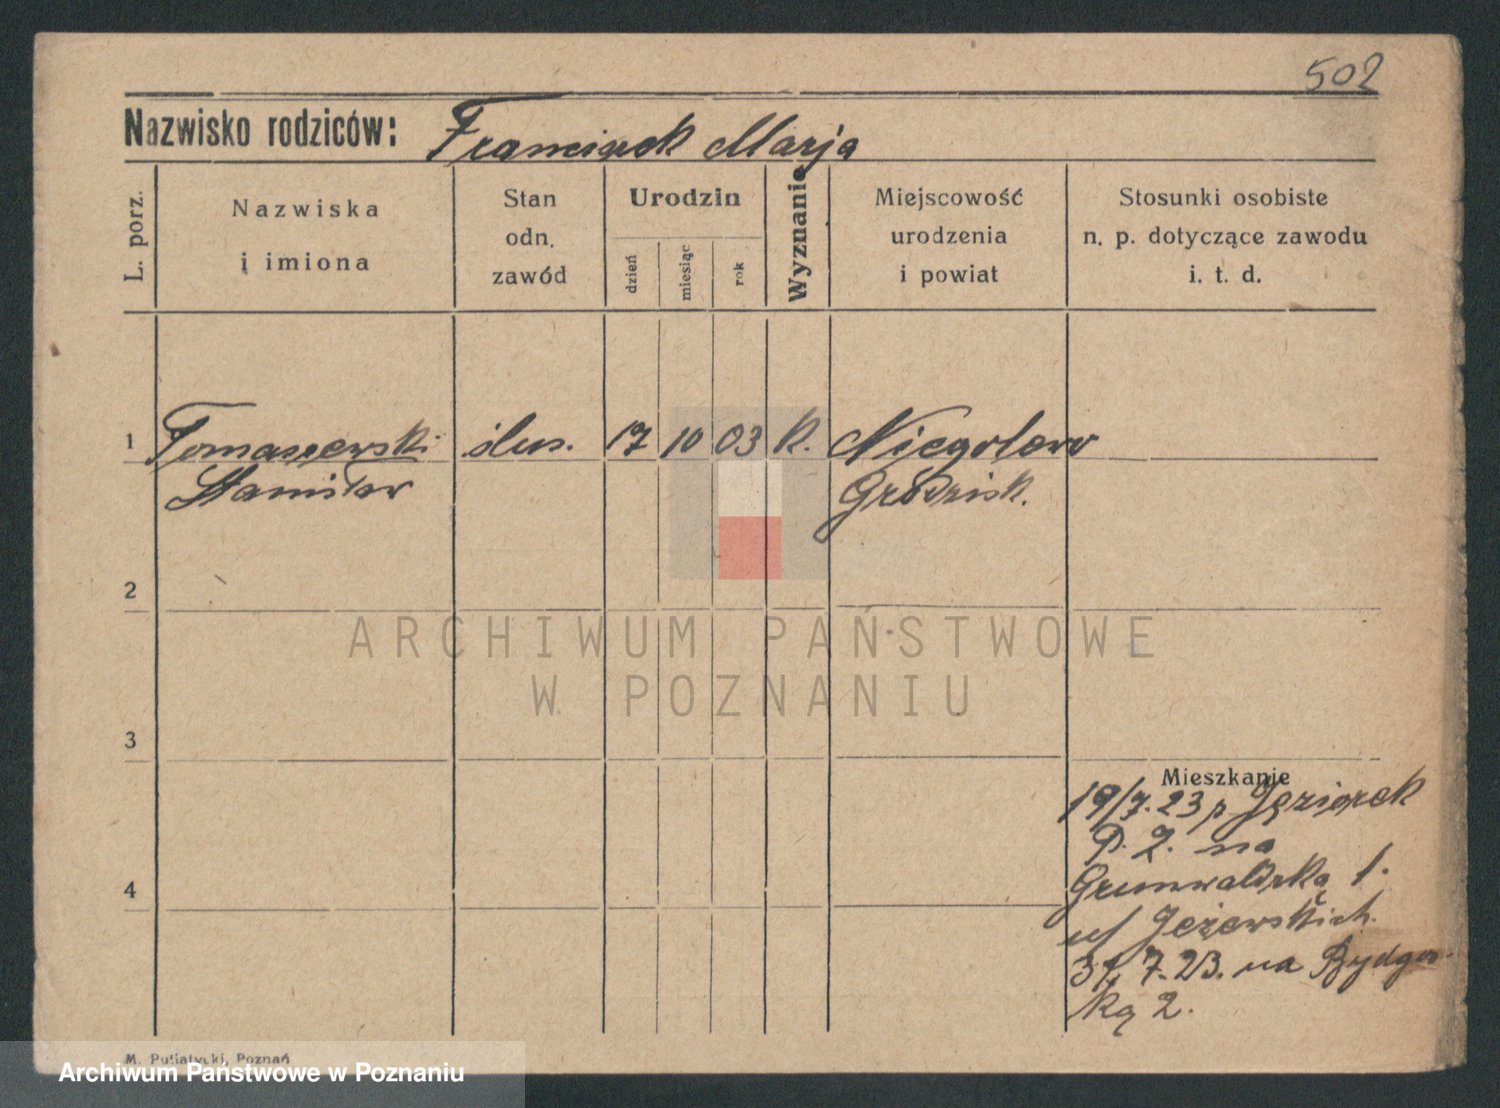 502
Nazwisko rodziców: Franciszek Marja
L. porz.
Nazwiska
i imiona
Stan
odn.
zawód
Urodzin
dzień
miesiąc
rok
Wyznanie
Miejscowość
urodzenia
i powiat
Stosunki osobiste
n. p. dotyczące zawodu
i. t. d.
1 Tomaszewski ślus. 17 10 03 k. Niegolewo
Stanisław Grodzisk.
2
ARCHIWUM PAŃSTWOWE
W POZNANIU
3
Mieszkanie
19/7.23 p
P. 2. na
4
Grunwaldzką 1.
Jeżewskich.
7.23. na Bydgos-
ką 2.
M. Putiatycki, Poznań
Archiwum Państwowe w Poznaniu